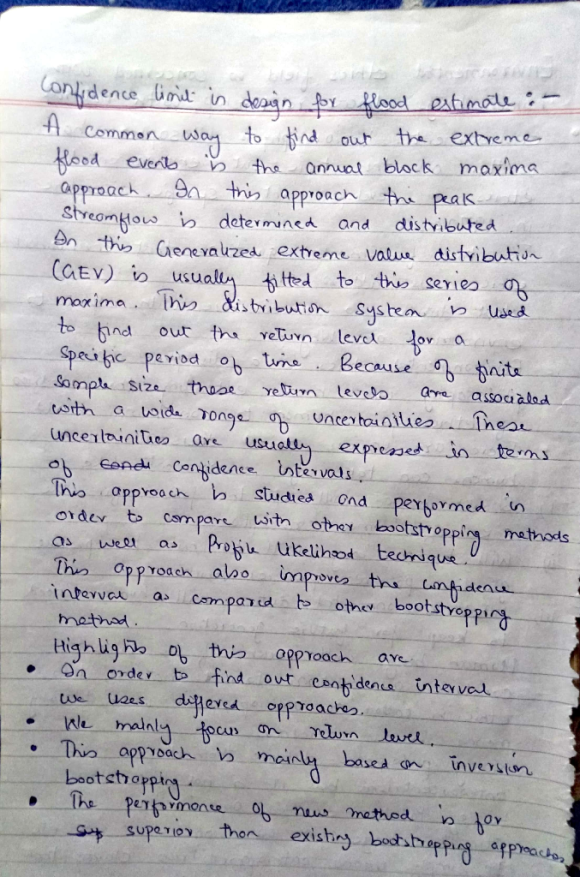 Confidence limit in design for flood estimate :-
A common way to find out the extreme
flood events is the annual block maxima
approach. In this approach the peak
streamflow is determined and distributed.
In this Generalized extreme value distribution
(GEV) is usually fitted to this series of
maxima. This distribution system is used
to find out the return level for a
specific period of time. Because of finite
sample size these return levels are associated
with a wide range of uncertainities. These
uncertainities are usually expressed in terms
of confidence intervals.
This approach is studied and performed in
order to compare with other bootstropping methods
as well as Profile likelihood technique.
This approach also improves the confidence
interval as compared to other bootstropping
method.
Highlights of this approach are
• In order to find out confidence interval
we uses differed approaches.
• We mainly focus on return level.
• This approach is mainly based on inversion
bootstropping.
• The performance of new method is for
superior than existing bootstropping approaches